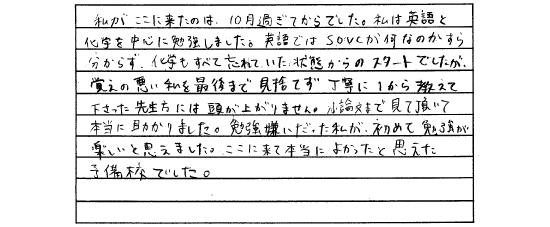 私がここに来たのは、10月過ぎてからでした。私は英語と
化学を中心に勉強しました。英語ではSOVCが何なのかすら
分からず、化学もすべて忘れていた状態からのスタートでしたが、
覚えの悪い私を最後まで見捨てず丁寧に1から教えて
下さった先生方には頭が上がりません。小論文まで見て頂いて
本当に助かりました。勉強嫌いだった私が、初めて勉強が
楽しいと思えました。ここに来て本当によかったと思えた
予備校でした。